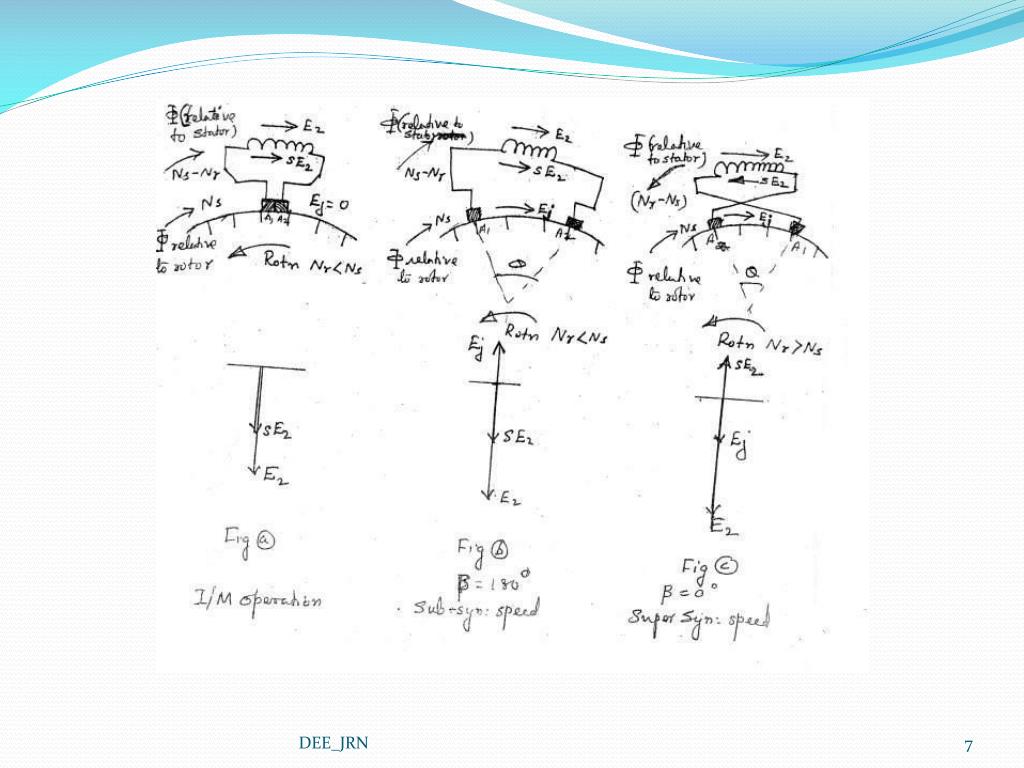 Φ(relative
to stator)
E₂
sE₂
Ns-Nr
Ns
Ej=0
A₁ A₂
Φ relative
to rotor
Rotn Nr<Ns
sE₂
E₂
Fig ⓐ
I/M operation
Φ(relative to
stator)
E₂
sE₂
Ns-Nr
Ns
Ej
A₁
A₂
Φ relative
to rotor
θ
Rotn Nr<Ns
Ej
sE₂
E₂
Fig ⓑ
β=180°
Sub-syn: speed
Φ(relative
to stator)
E₂
sE₂
(Nr-Ns)
Ns
Ej
A₂
A₁
Φ relative
to rotor
θ
Rotn Nr>Ns
sE₂
Ej
E₂
Fig ⓒ
β=0°
Super Syn: speed
DEE_JRN
7